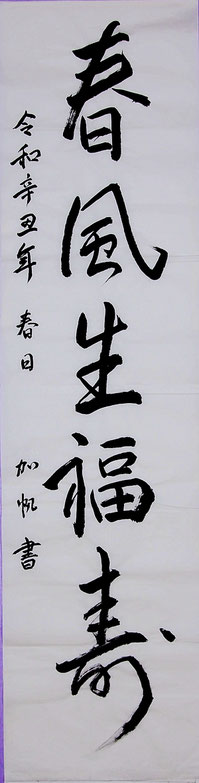 春風生福寿
令和辛丑年 春日 加帆書